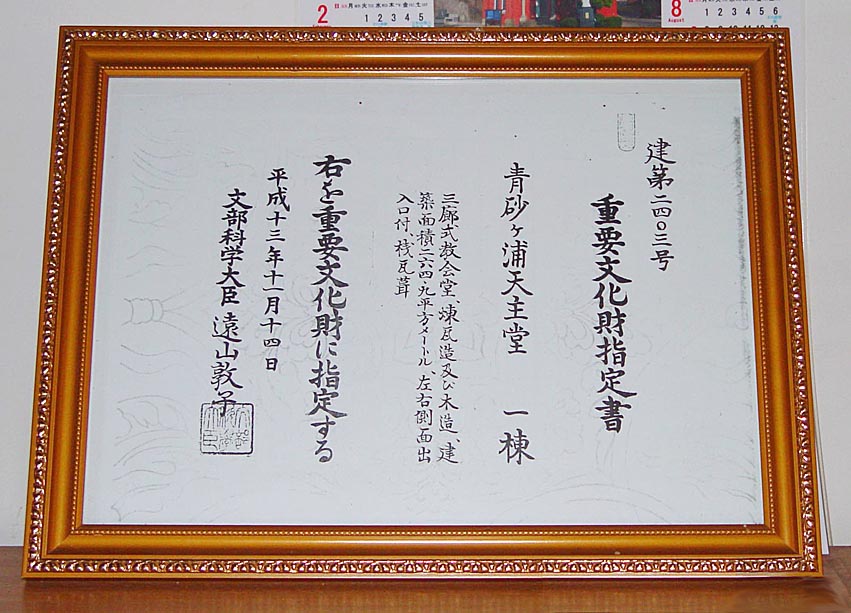 2
日月火水木金土
1 2 3 4 5
8
August
日月火水木金土
1 2 3 4 5 6
建第二四〇三号
重要文化財指定書
青砂ヶ浦天主堂 一棟
三廊式教会堂、煉瓦造及び木造、建
築面積二六四・九平方メートル、左右側面出
入口付、桟瓦葺
右を重要文化財に指定する
平成十三年十一月十四日
文部科学大臣 遠山敦子